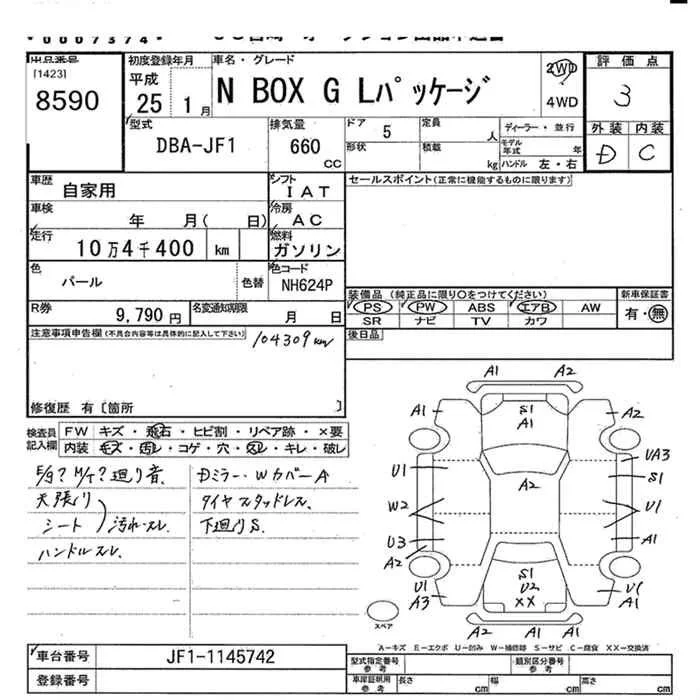 00007374
出品番号 初度登録年月 車名・グレード 2WD 評価点
[1423] 平成 N BOX G Lパッケージ 3
8590 25 1月 4WD
型式 排気量 ドア 5 定員 人 ディーラー・並行 外装 内装
DBA-JF1 660 cc 形状 積載 kg モデル年式 年 D C
ハンドル 左・右
車歴 自家用 シフト IAT セールスポイント(正常に機能するものに限ります)
車検 年 月( 日) 冷房 AC
走行 10万4千400 km 燃料 ガソリン
色 パール 色替 色コード NH624P
装備品 (純正品に限り○をつけてください) 新車保証書
PS PW ABS エアB AW 有・無
SR ナビ TV カワ
R券 9,790円 名変通知期限 月 日
注意事項申告欄(不具合内容等は具体的に記入して下さい) 104309km 後日品
修復歴 有〔箇所 〕
検査員記入欄 FW キズ・飛石・ヒビ割・リペア跡・×要
内装 キズ・汚レ・コゲ・穴・スレ・キレ・破レ
E/g? M/T? 廻り音. Dミラー・WカバーA
天張り タイヤスタッドレス.
シート 汚れ・スレ. 下廻りS.
ハンドルスレ.
A1 A2
A1 S1 A2
A1
U1 A2 UA3
S1
W2 U1
U3 A1
A2
U1 S1 U1
A3 U2 A1
XX
A2 A1
スペア
A-キズ E-エクボ U-凹み W-補修跡 S-サビ C-腐食 XX-交換済
車台番号 JF1-1145742
登録番号
型式指定番号 参考 類別区分番号 参考
車庫証明用 参考 長さ cm 幅 cm 高さ cm